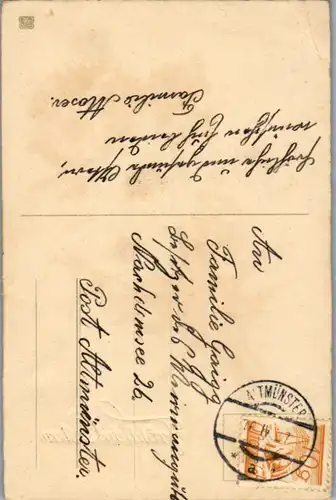 Fröhliche und gesunde Ostern,
wünschen Euch
Familie Moser.
An
Familie Gaigg
Besitzer des
Nachdemsee 26,
Post Altmünster.
ALTMÜNSTER